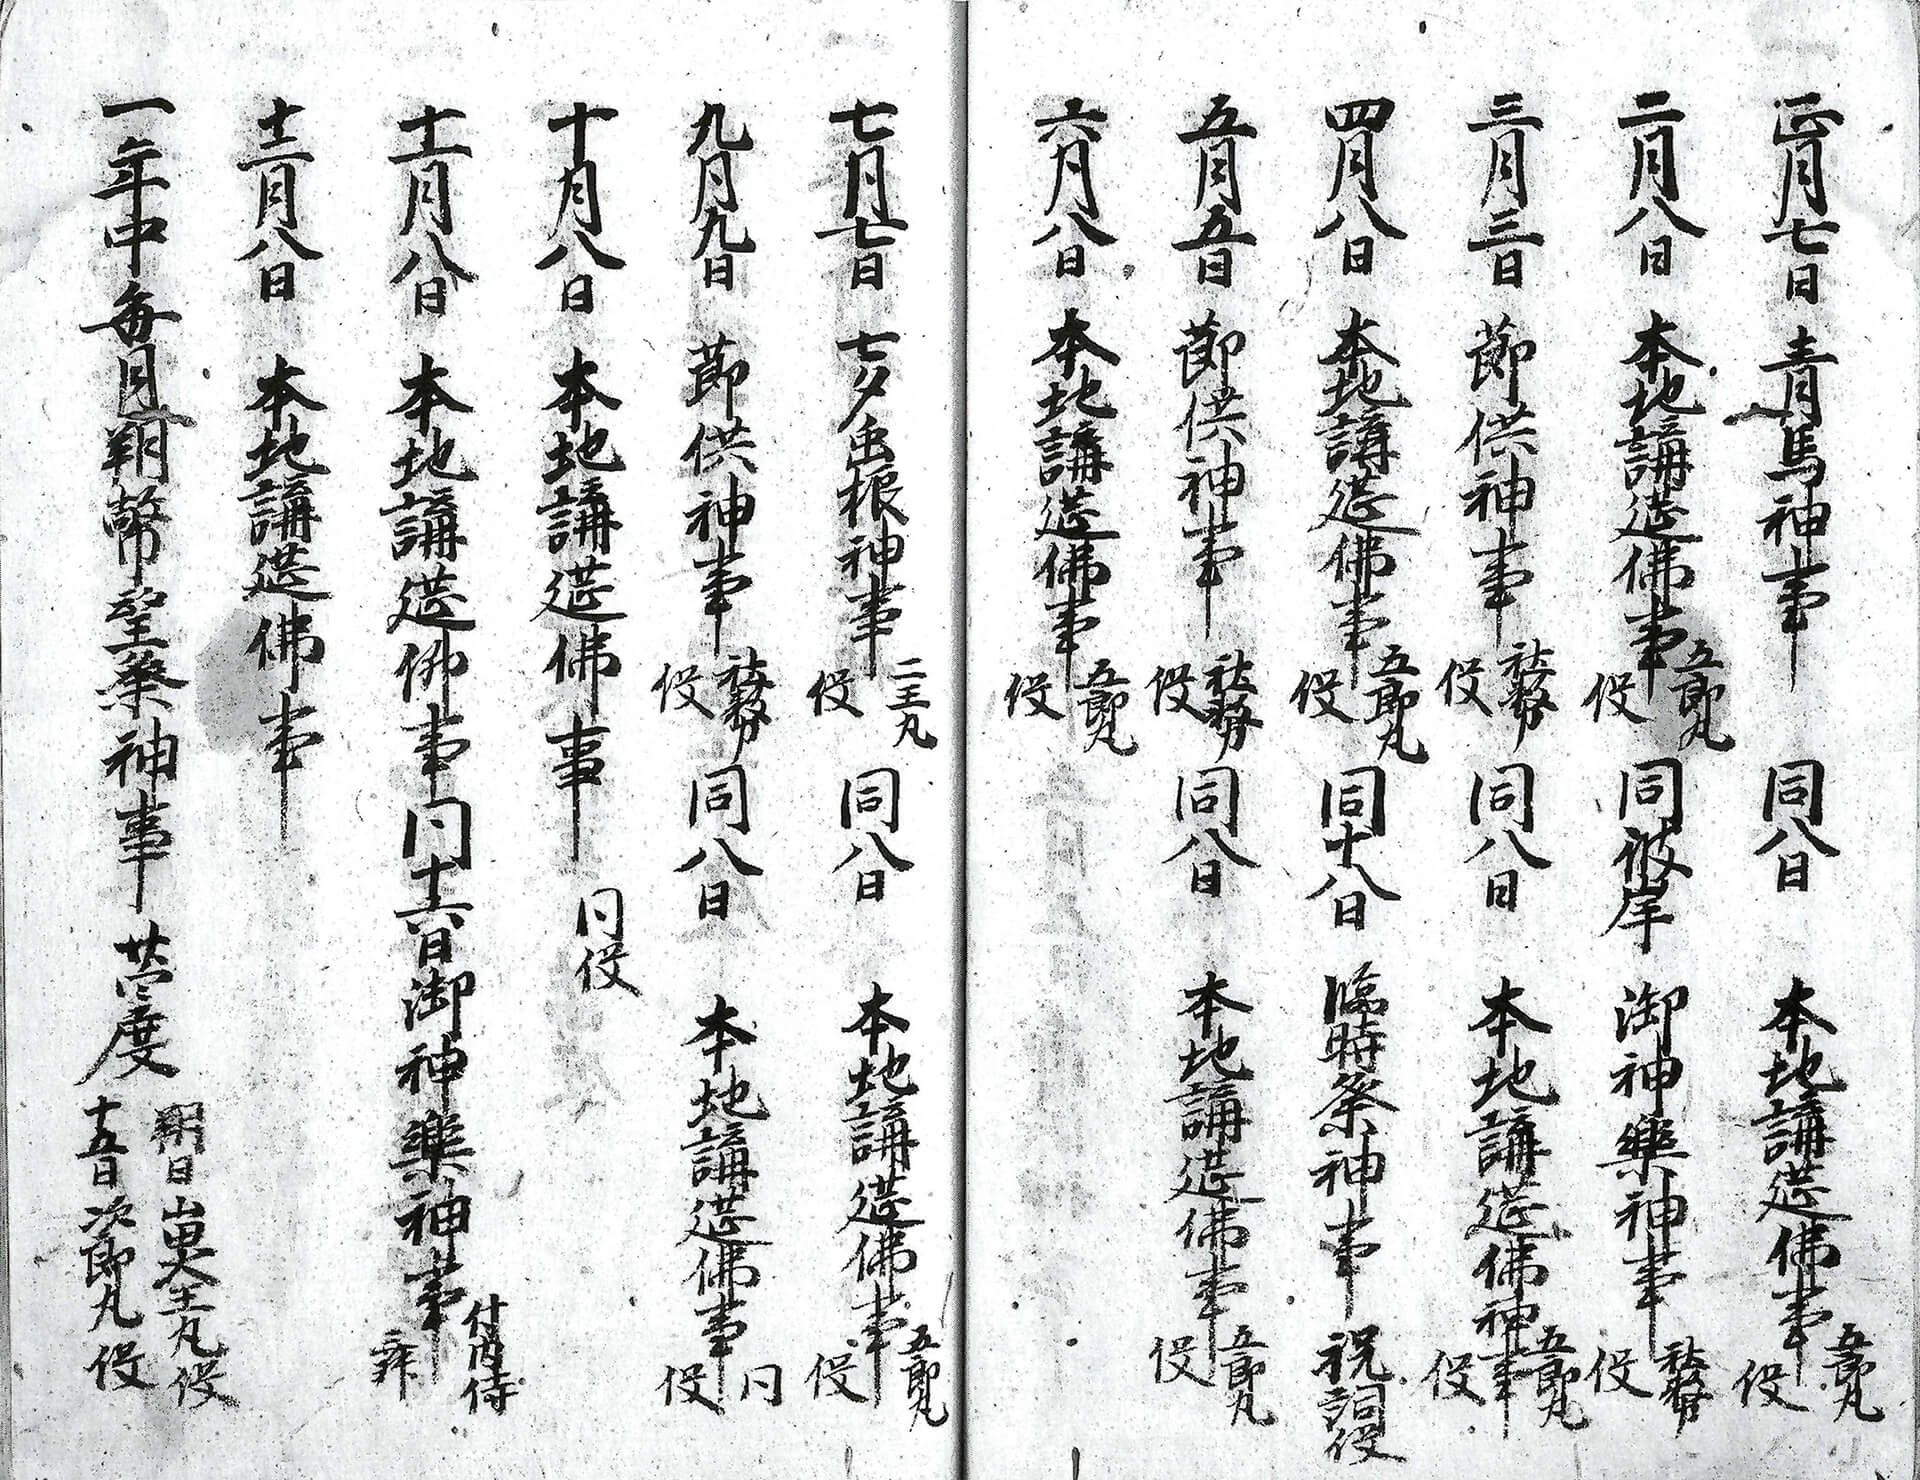 正月七日 青馬神事 同八日 本地講莚佛事 五郎丸役
二月八日 本地講莚佛事 五郎丸役 同彼岸 御神樂神事 社務役
三月三日 節供神事 社務役 同八日 本地講莚佛神事 五郎丸役
四月八日 本地講莚佛事 五郎丸役 同十八日 臨時祭神事 祝詞役
五月五日 節供神事 社務役 同八日 本地講莚佛事 五郎丸役
六月八日 本地講莚佛事 五郎丸役
七月七日 七夕虫振神事 二王丸役 同八日 本地講莚佛事 五郎丸役
九月九日 節供神事 社務役 同八日 本地講莚佛事 同役
十月八日 本地講莚佛事 同役
十一月八日 本地講莚佛事 同十六日御神樂神事 付内侍
十二月八日 本地講莚佛事
一年中毎月朔幣望祭神事 廿四度 朔日 大王丸役 十五日 次郎丸役